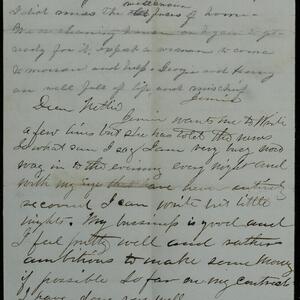 I did miss the faces of home
House cleaning
ready for it, expect a woman to come
to morrow and help. Georgie and
are well full of life and mischief
Jennie
Dear Nettie
Jennie wants me to write
a few lines but she has told the news
so what can I say I am very busy
way in to the evening every night and
with my eyes that are never entirely
second I can write but little
nights. My bussiness is good and
I feel pretty well and rather
ambitious to make some money
if possible So far on my contract
I have done very well